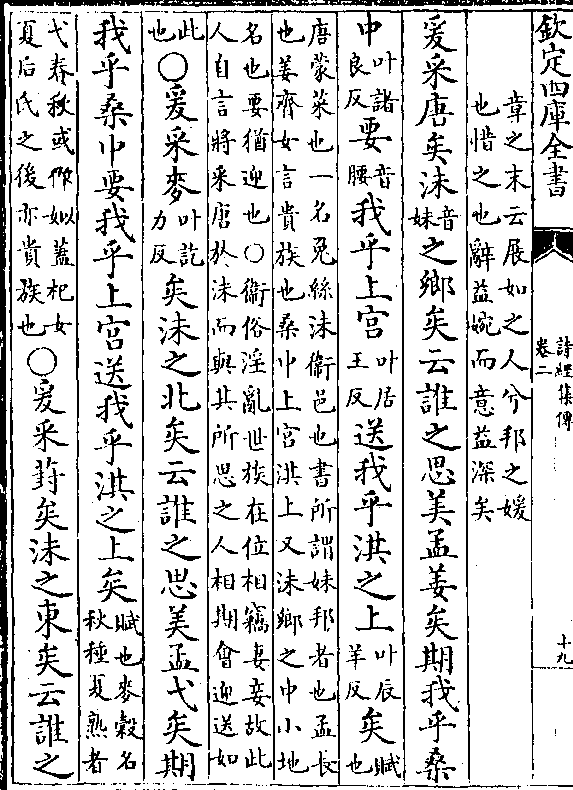 欽定四庫全書
詩經集傳
卷二
十九
章之末云展如之人兮邦之媛
也惜之也辭益婉而意益深矣
爰采唐矣沬音妹之鄉矣云誰之思美孟姜矣期我乎桑
中叶諸良反要音腰我乎上宮叶居王反送我乎淇之上叶辰羊反矣賦也
唐蒙菜也一名兔絲沬衞邑也書所謂妹邦者也孟長
也姜齊女言貴族也桑中上宮淇上又沬鄉之中小地
名也要猶迎也○衞俗淫亂世族在位相竊妻妾故此
人自言將采唐於沬而與其所思之人相期會迎送如
此也○爰采麥叶訖力反矣沬之北矣云誰之思美孟弋矣期
我乎桑中要我乎上宮送我乎淇之上矣賦也麥穀名秋種夏熟者
弋春秋或作姒蓋杞女
夏后氏之後亦貴族也○爰采葑矣沬之東矣云誰之